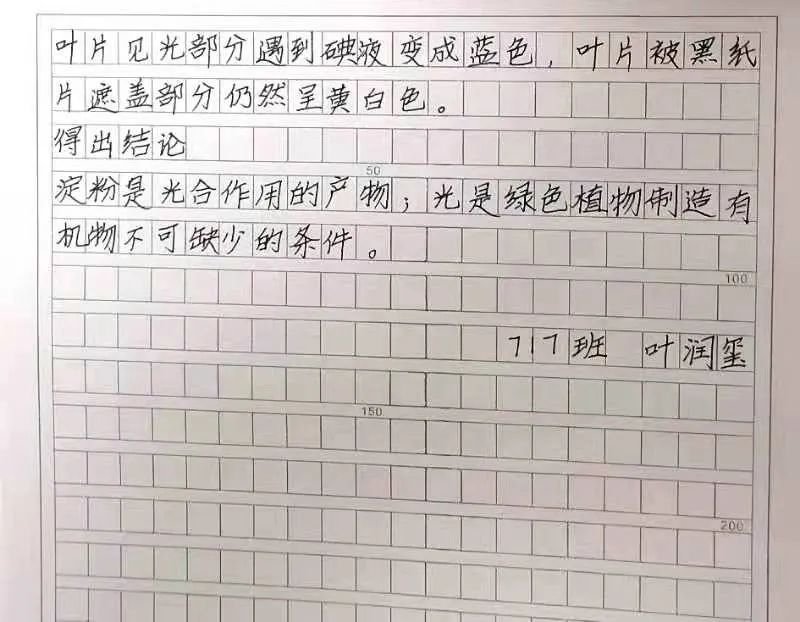 叶片见光部分遇到碘液变成蓝色，叶片被黑纸
片遮盖部分仍然呈黄白色。
得出结论
50
淀粉是光合作用的产物；光是绿色植物制造有
机物不可缺少的条件。
100
717班 叶润玺
150
200